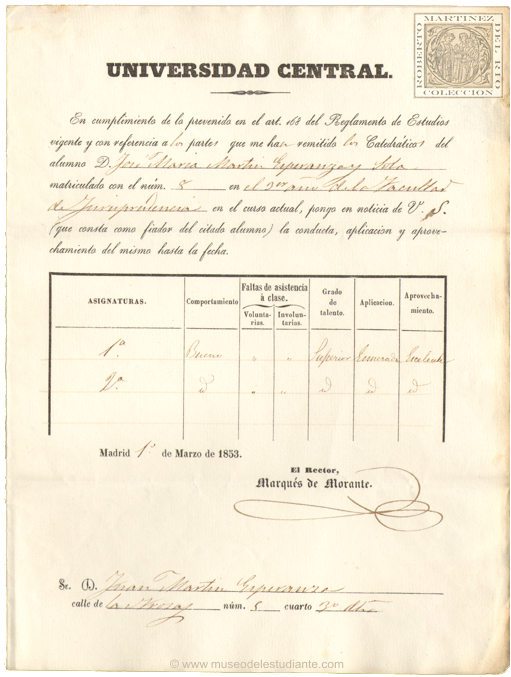 ROBERTO MARTINEZ DEL RIO
COLECCION
UNIVERSIDAD CENTRAL.
En cumplimiento de lo prevenido en el art. 168 del Reglamento de Estudios
vigente y con referencia a los partes que me han remitido los Catedráticos del
alumno D. José María Martin Esperanza y Sola
matriculado con el núm. 8 en el año de la Facultad
de Jurisprudencia en el curso actual, pongo en noticia de V. S.
(que consta como fiador del citado alumno) la conducta, aplicacion y aprove-
chamiento del mismo hasta la fecha.
ASIGNATURAS. Comportamiento Faltas de asistencia á clase. Grado de talento. Aplicacion. Aprovecha-miento.
Volunta-rias. Involun-tarias.
1.ª Bueno " " Superior Esmerada Excelente
2.ª id " " id id id
Madrid 1º de Marzo de 1853.
El Rector,
Marqués de Morante.
Sr. D. Juan Martin Esperanza
calle de núm. 8 cuarto 3º
© www.museodelestudiante.com